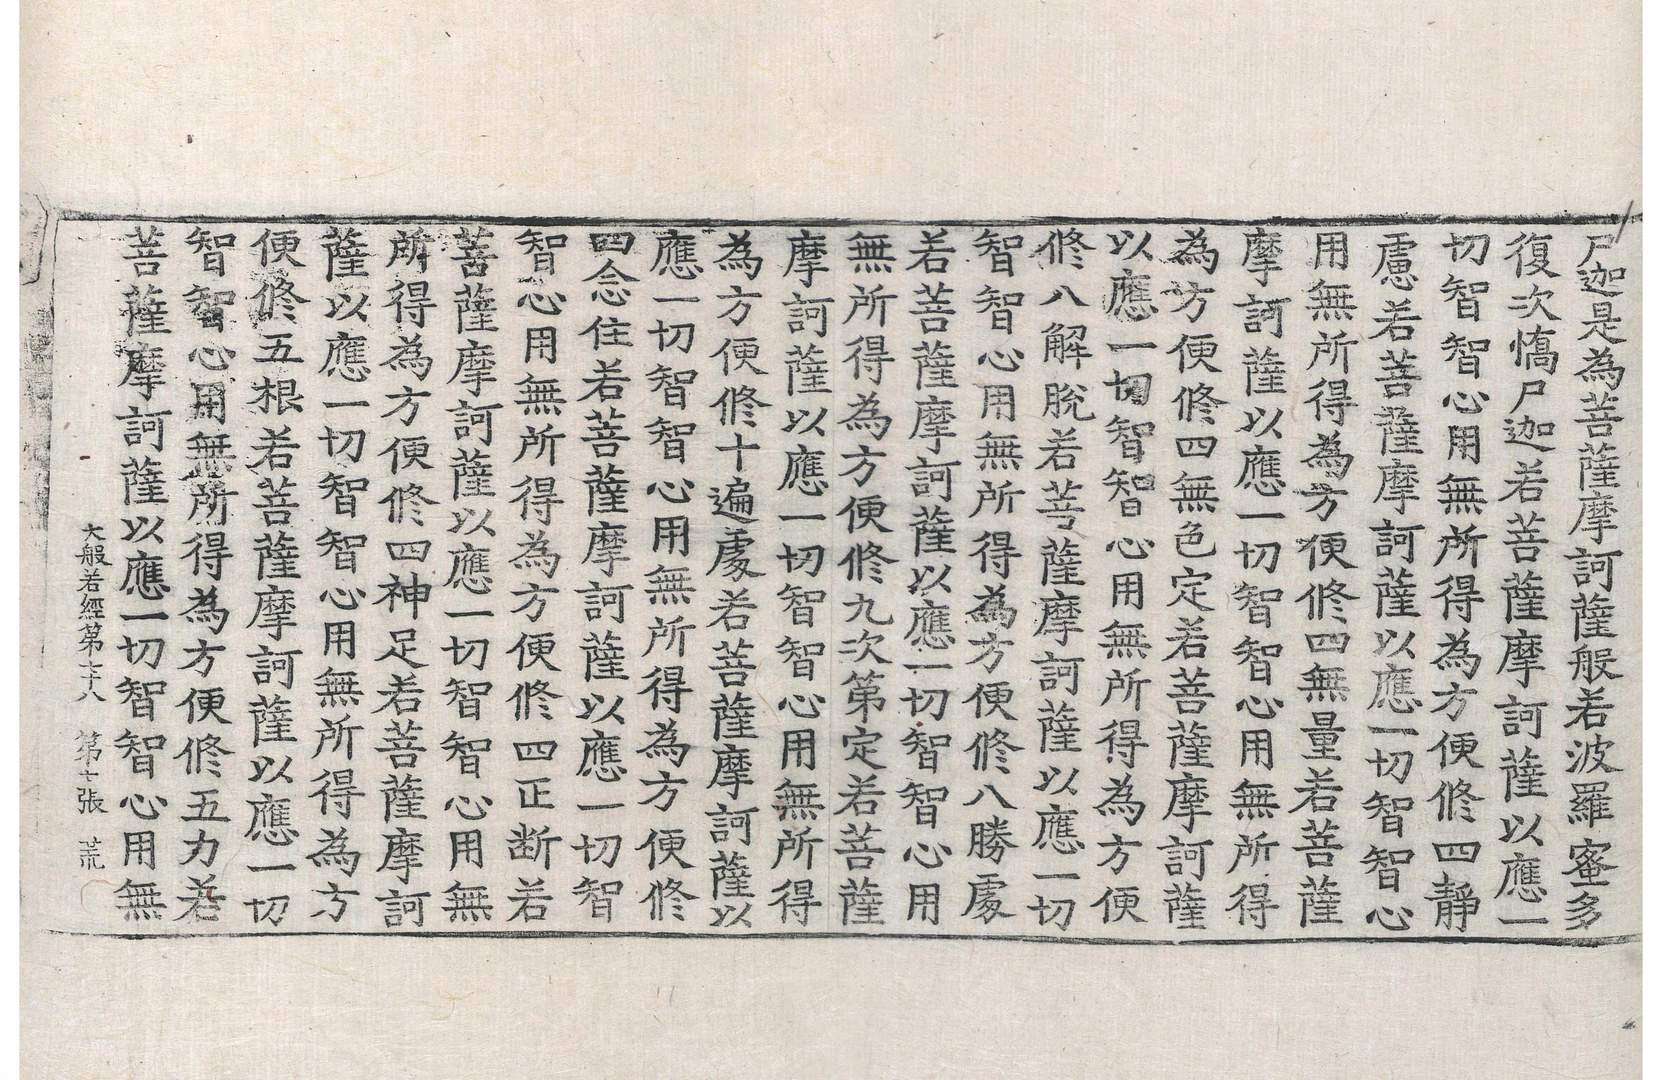 尸迦是為菩薩摩訶薩般若波羅蜜多
復次憍尸迦若菩薩摩訶薩以應一
切智智心用無所得為方便修四靜
慮若菩薩摩訶薩以應一切智智心
用無所得為方便修四無量若菩薩
摩訶薩以應一切智智心用無所得
為方便修四無色定若菩薩摩訶薩
以應一切智智心用無所得為方便
修八解脫若菩薩摩訶薩以應一切
智智心用無所得為方便修八勝處
若菩薩摩訶薩以應一切智智心用
無所得為方便修九次第定若菩薩
摩訶薩以應一切智智心用無所得
為方便修十遍處若菩薩摩訶薩以
應一切智智心用無所得為方便修
四念住若菩薩摩訶薩以應一切智
智心用無所得為方便修四正断若
菩薩摩訶薩以應一切智智心用無
所得為方便修四神足若菩薩摩訶
薩以應一切智智心用無所得為方
便修五根若菩薩摩訶薩以應一切
智智心用無所得為方便修五力若
大般若經第七十八 第十張 荒
菩薩摩訶薩以應一切智智心用無